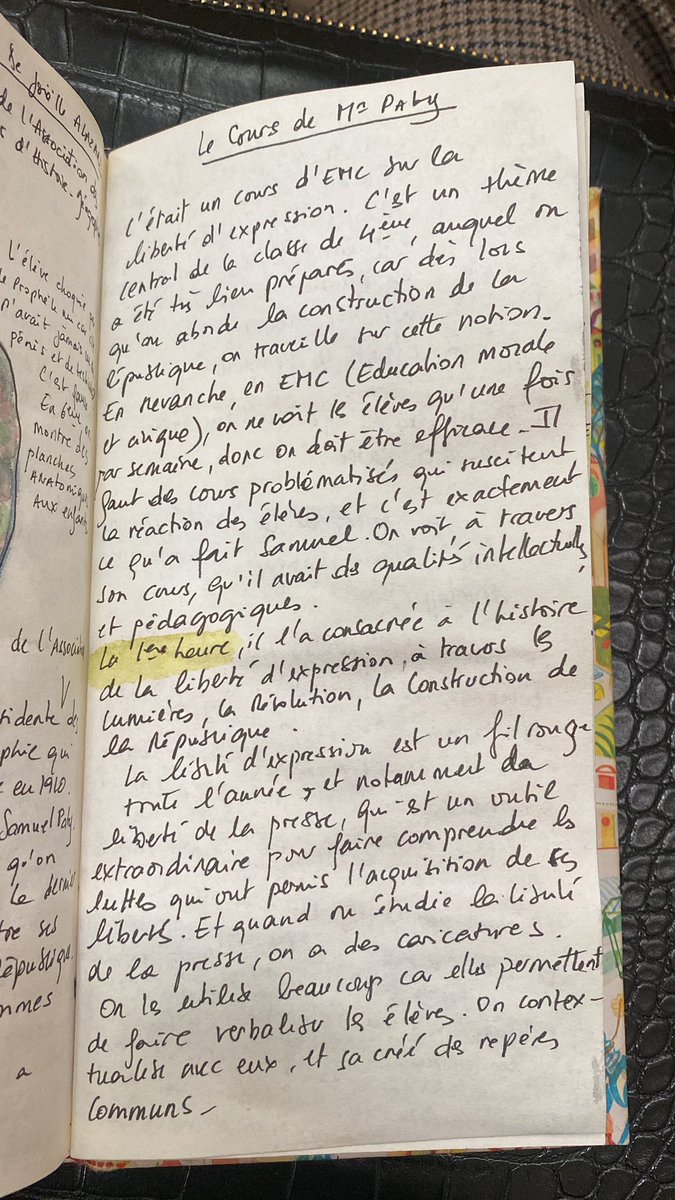 de Joëlle
de l'Association des
d'Histoire-géographie
L'élève choqué
le Prophète
n'avait jamais vu
pénis et de
C'est faux
En 6ème, on
montre des
planches
ANATOMIQUES
aux enfants
de l'Associati
V
sidente de
phie qui
en 1910.
Samuel Paty.
qu'on
le dernier
tre ses
République.
mmes
a
Le Cours de Mr PAty
C'était un cours d'EMC sur la
liberté d'expression. C'est un thème
central de la classe de 4ème, auquel on
a été très bien préparés, car dès lors
qu'on aborde la construction de la
République, on travaille sur cette notion.
En revanche, en EMC (Education morale
et civique), on ne voit les élèves qu'une fois
par semaine, donc on doit être efficace. Il
faut des cours problématisés qui suscitent
la réaction des élèves, et c'est exactement
ce qu'a fait Samuel. On voit à travers
son cours, qu'il avait des qualités intellectuelles
et pédagogiques.
La 1ère heure, il l'a consacrée à l'histoire
de la liberté d'expression, à travers les
lumières, la Révolution, la Construction de
la République.
La liberté d'expression est un fil rouge
toute l'année, et notamment la
liberté de la presse, qui est un outil
extraordinaire pour faire comprendre les
luttes qui ont permis l'acquisition de ses
libertés. Et quand on étudie la liberté
de la presse, on a des caricatures.
On les utilise beaucoup car elles permettent
de faire verbaliser les élèves. On contex-
tualise avec eux, et sa créé des repères
communs -